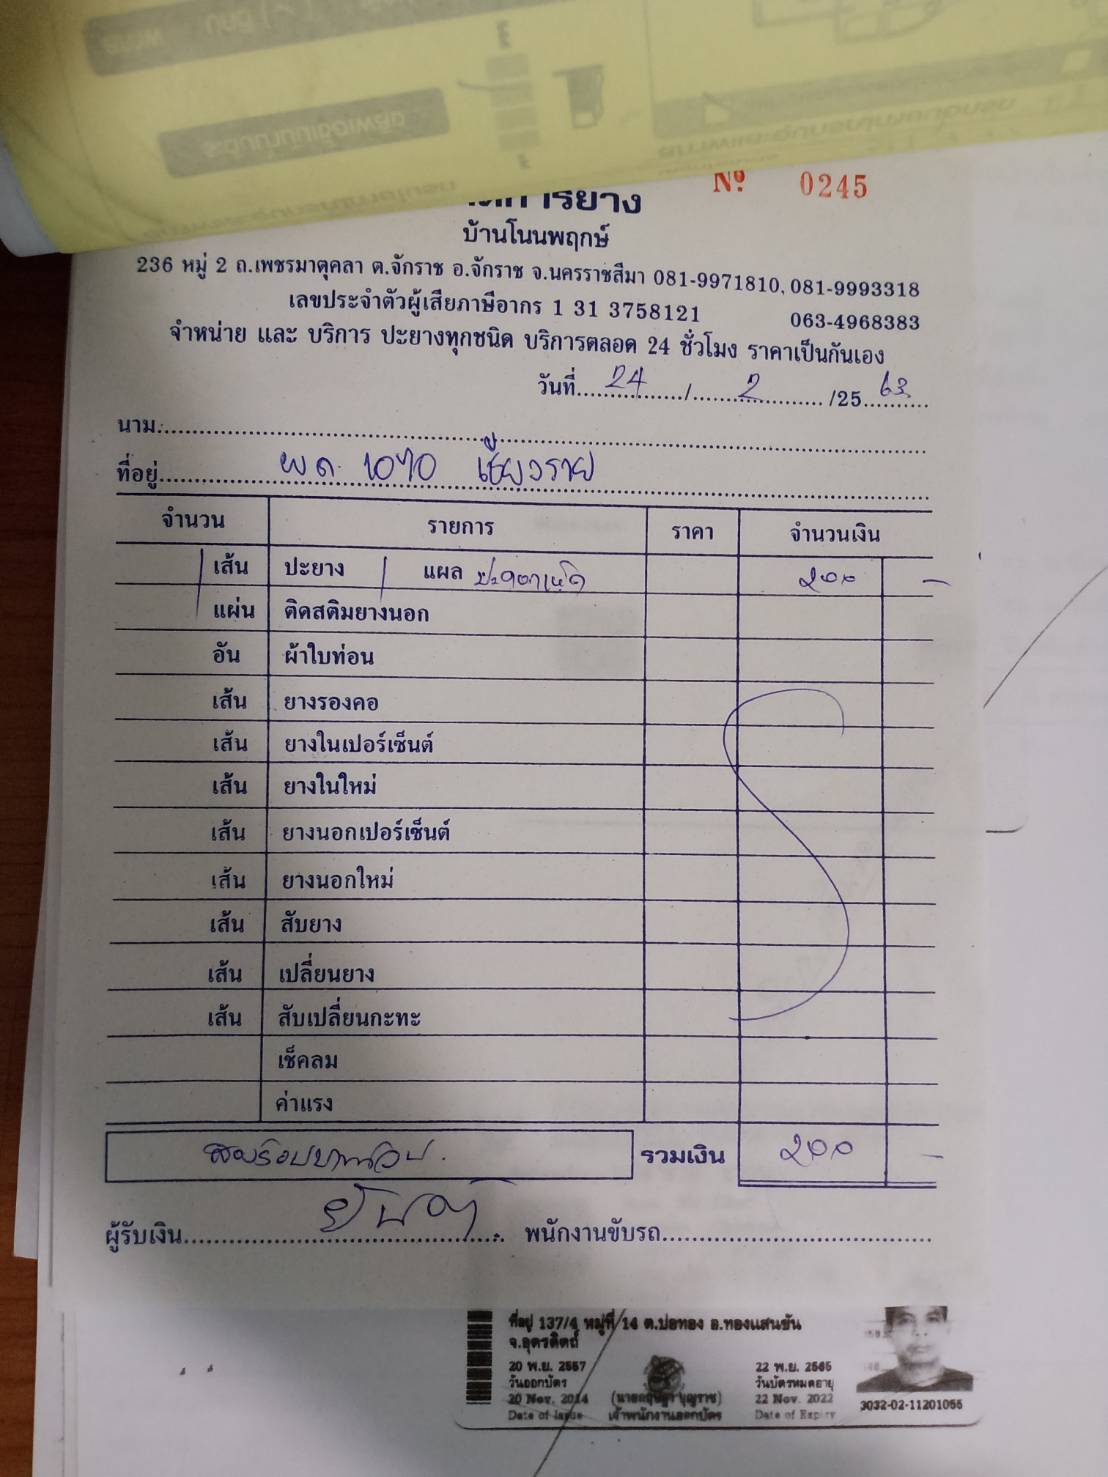 การยาง
№ 0245
บ้านโนนพฤกษ์
236 หมู่ 2 ถ.เพชรมาตุคลา ต.จักราช อ.จักราช จ.นครราชสีมา 081-9971810, 081-9993318
เลขประจำตัวผู้เสียภาษีอากร 1 31 3758121 063-4968383
จำหน่าย และ บริการ ปะยางทุกชนิด บริการตลอด 24 ชั่วโมง ราคาเป็นกันเอง
วันที่ 24 / 2 /25 63
นาม
ที่อยู่ ผด. 1070 เชียงราย
จำนวน รายการ ราคา จำนวนเงิน
เส้น ปะยาง 1 แผล ๒๐๐ -
แผ่น ติดสติมยางนอก
อัน ผ้าใบท่อน
เส้น ยางรองคอ
เส้น ยางในเปอร์เซ็นต์
เส้น ยางในใหม่
เส้น ยางนอกเปอร์เซ็นต์
เส้น ยางนอกใหม่
เส้น สับยาง
เส้น เปลี่ยนยาง
เส้น สับเปลี่ยนกะทะ
เช็คลม
ค่าแรง
สองร้อยบาทถ้วน. รวมเงิน ๒๐๐ -
ผู้รับเงิน พนักงานขับรถ
ที่อยู่ 137/4 หมู่ที่ 14 ต.บ่อทอง อ.ทองแสนขัน
จ.อุตรดิตถ์
20 พ.ย. 2557 22 พ.ย. 2565
วันออกบัตร วันบัตรหมดอายุ
20 Nov. 2014 22 Nov. 2022
Date of Issue เจ้าพนักงานออกบัตร Date of Expiry
3032-02-11201055